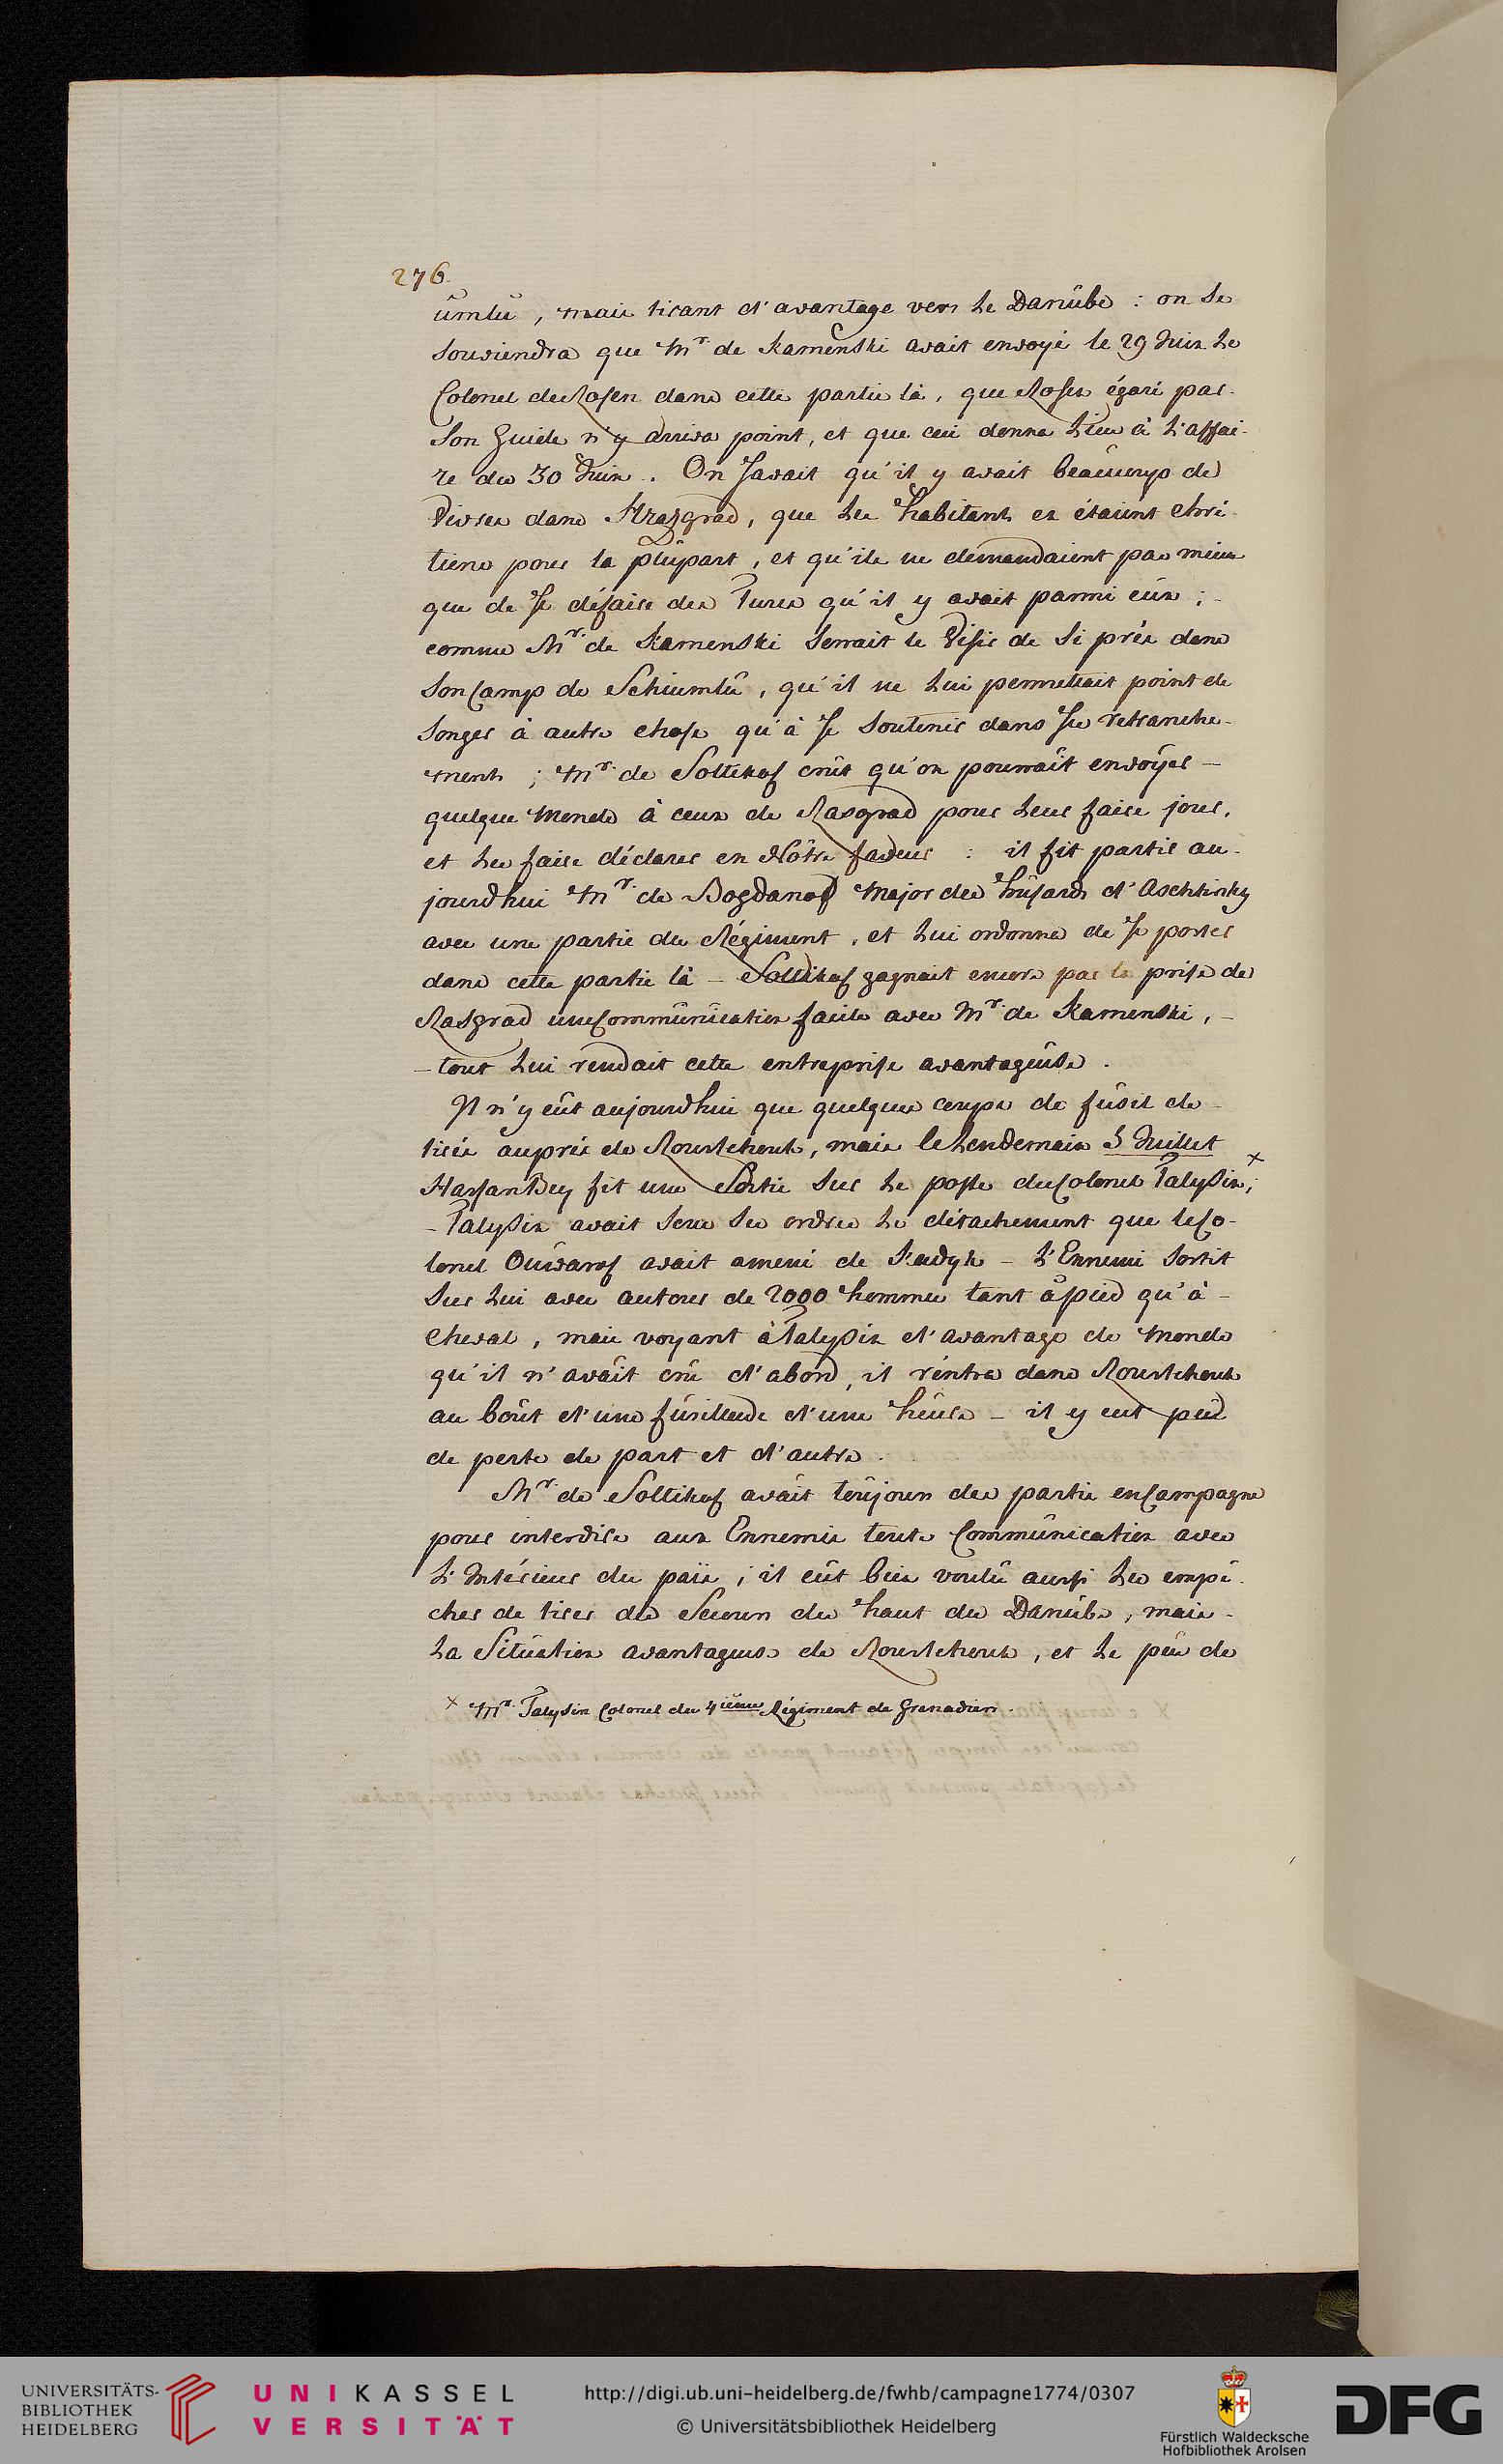 276.
ûmlû, mais tirant d'avantage vers le Danûbe : on se
souviendra que Mr de Kamenski avait envoyé le 29 Juin le
Colonel de Rosen dans cette partie là, que Rosen égaré par
son guide n'y arriva point, et que ceci donna lieu à l'affai-
re du 30 Juin. On savait qu'il y avait beaûcoup de
vivres dans Hrazgrad, que les habitants en étaient chré-
tiens pour la plûpart, et qu'ils ne demandaient pas mieux
que de se défaire des Turcs qu'il y avait parmi eûx ; -
comme Mr de Kamenski serrait le Visir de si près dans
son Camp de Schiumlû, qu'il ne lui permettait point de
songer à autre chose qu'à se soutenir dans ses retranche-
ments ; Mr de Soltikof crût qu'on pourrait envoÿer -
quelque monde à ceux de Rasgrad pour leur faire jour,
et les faire déclarer en Nôtre faveur : il fit partir au-
jourdhui Mr de Bogdanof Major des hûsards d'Aschtirsky
avec une partie du Régiment, et lui ordonna de se porter
dans cette partie là - Soltikof gagnait encore par la prise de
Rasgrad une Commûnication facile avec Mr de Kamenski, -
- tout lui rendait cette entreprise avantageûse.
Il n'y eût aujourdhui que quelques coups de fûsil de
tirés auprès de Roustchouk, mais le lendemain 5 Juillet
Hassan Bey fit une Sortie sur le poste du Colonel Talysin, x
- Talysin avait sous ses ordres le détachement que le Co-
lonel Oûwarof avait amené de Kadyk - L'Ennemi sortit
sur lui avec autour de 2000 hommes tant à pied qu'à -
cheval, mais voyant à Talysin d'avantage de monde
qu'il n'avait crû d'abord, il rentra dans Roustchouk
au boût d'une fûsillade d'une heûre - il y eut peû
de perte de part et d'autre.
Mr de Soltikof avait toûjours des partis en Campagne
pour interdire aux Ennemis toute Commûnication avec
l'Intérieur du païs ; il eût bien voulû aussi les empê-
cher de tirer des Secours du haut du Danûbe, mais -
la Sitûation avantageuse de Roustchouk, et le peû de
x Mr Talysin Colonel du 4ieme Régiment de Grenadiers.
UNIVERSITÄTS-
BIBLIOTHEK
HEIDELBERG
UNIKASSEL
VERSITÄT
http://digi.ub.uni-heidelberg.de/fwhb/campagne1774/0307
© Universitätsbibliothek Heidelberg
Fürstlich Waldecksche
Hofbibliothek Arolsen
DFG